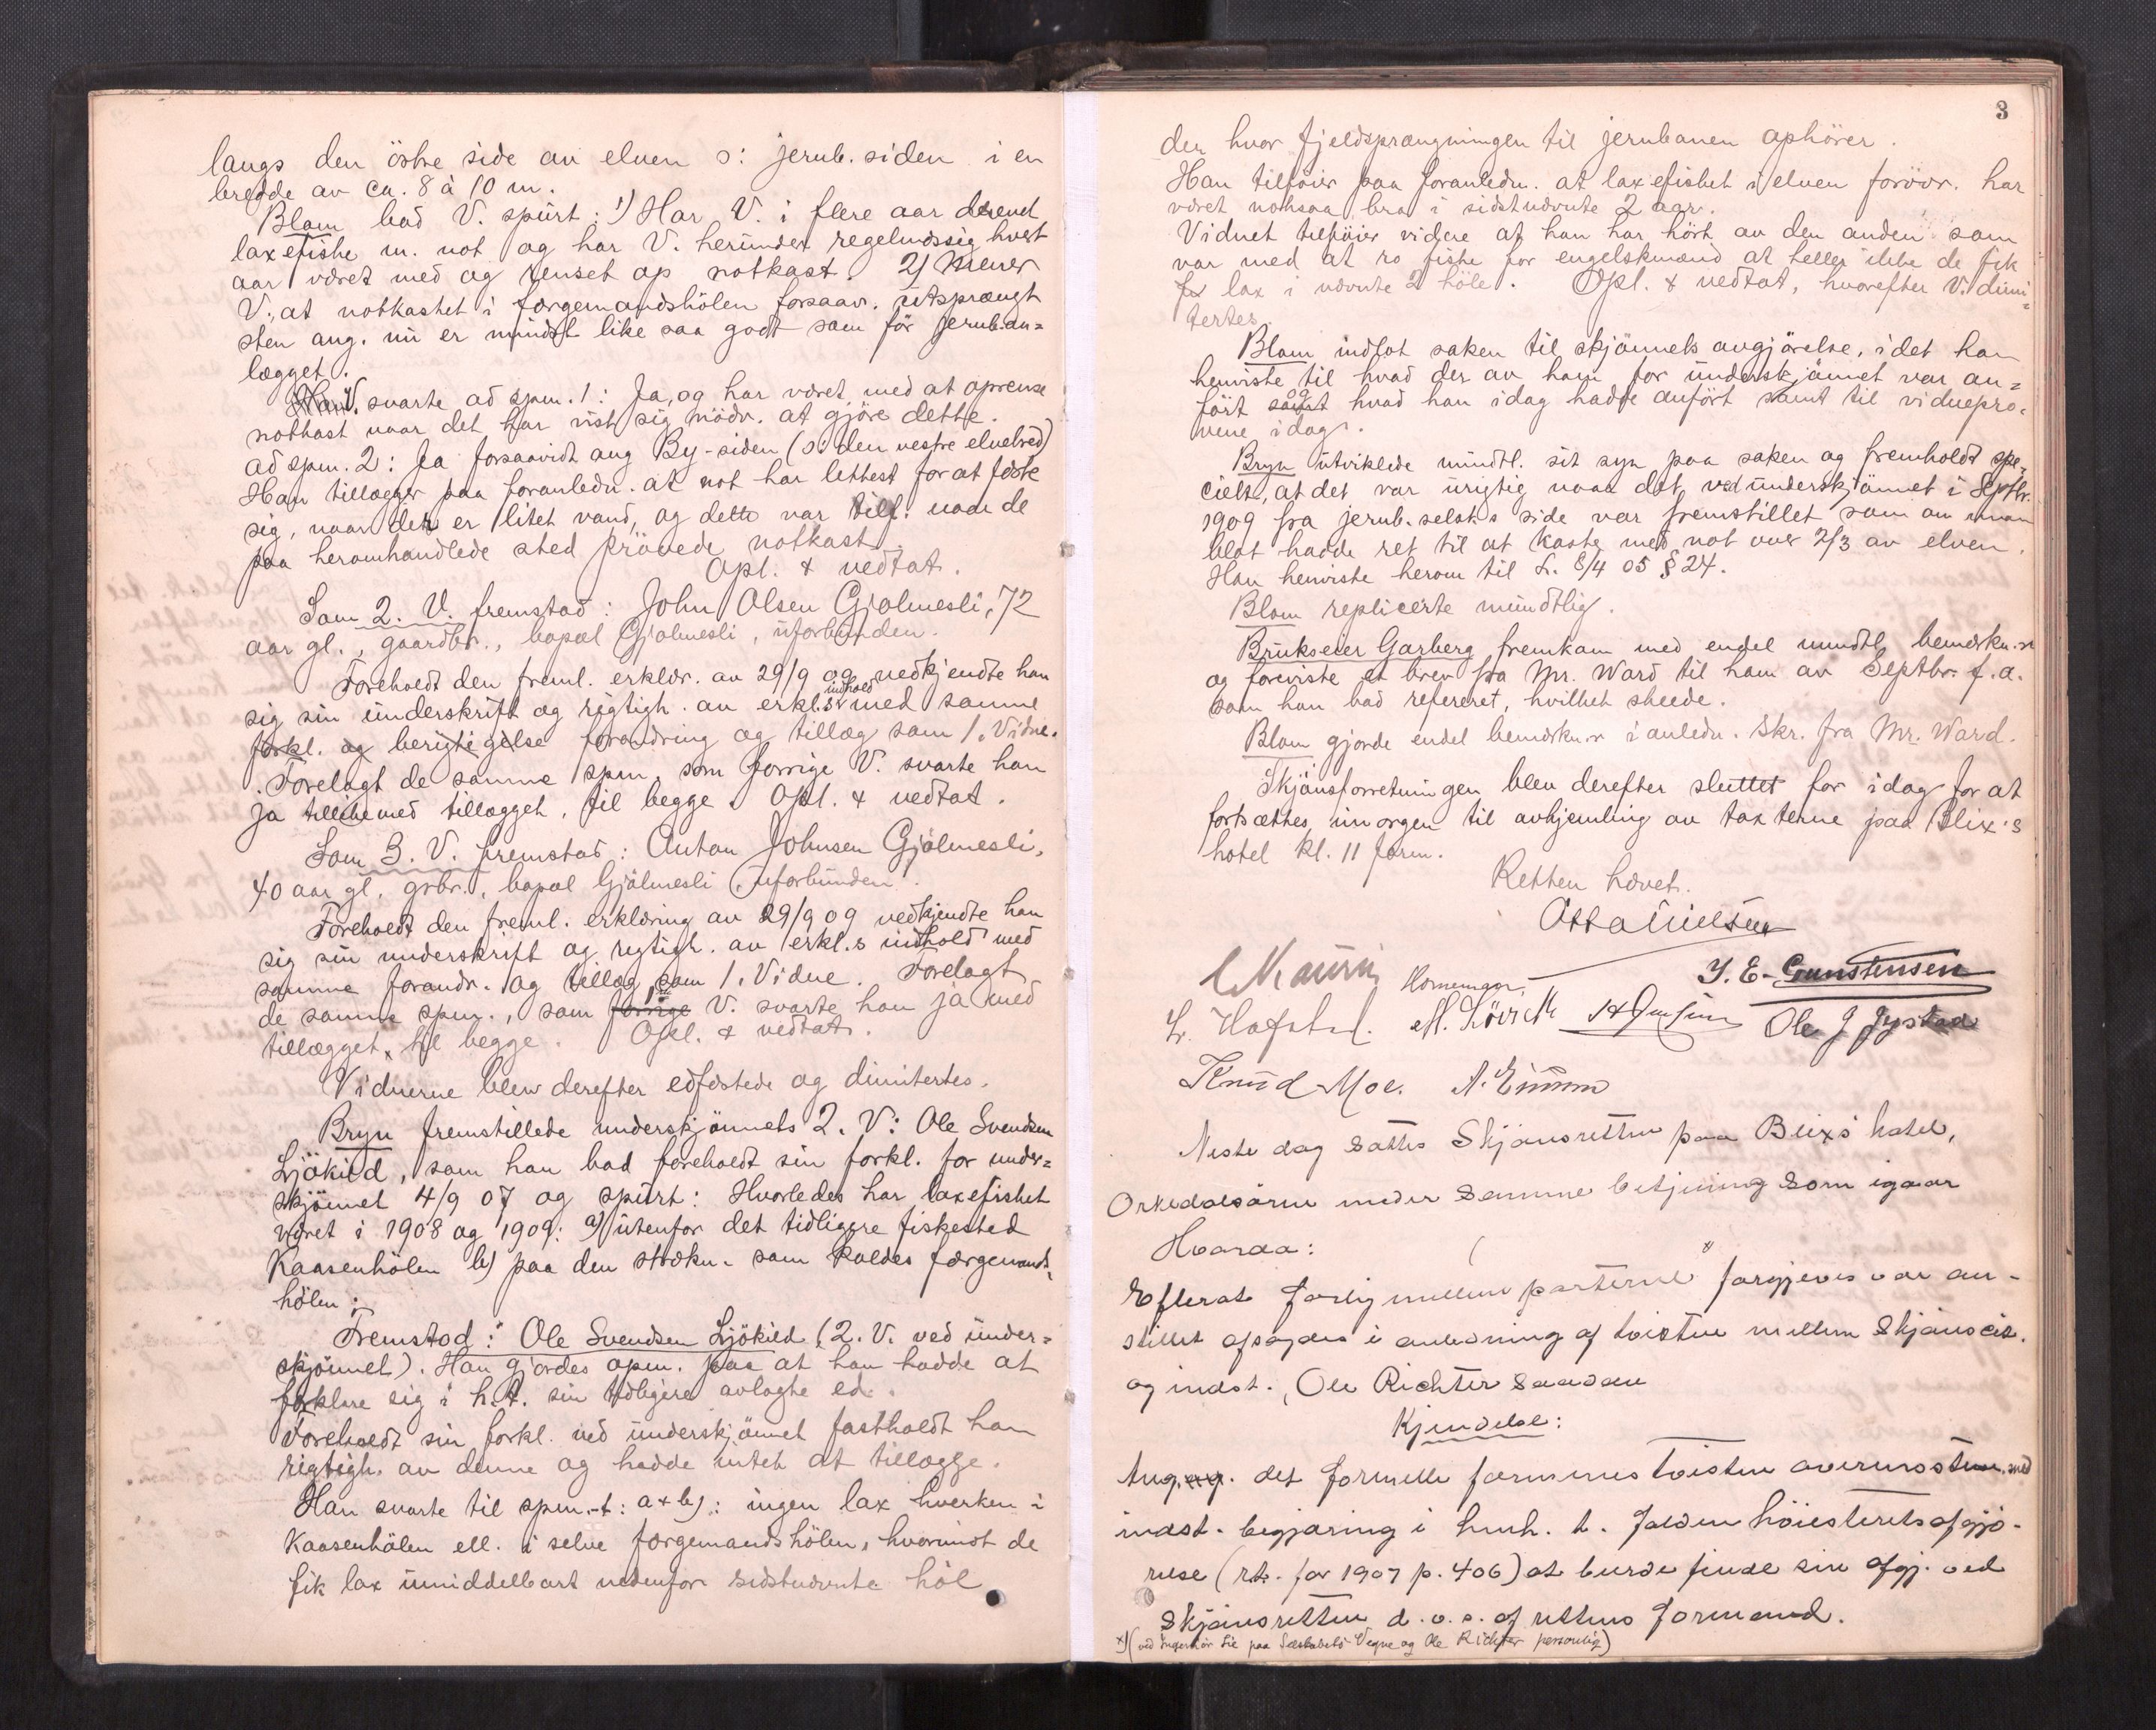 langs den östre side av elven ɔ: jernb. siden i en
bredde av ca. 8 à 10 m.
Blom bad V. spurt: 1) Har V. i flere aar drevet
laxefiske m. not og har V. herunder regelmæssig hvert
aar været med og renset op notkast. 2) Mener
V., at notkastet i færgemandshölen forsaav. utsprængt
sten ang. nu er mindst like saa godt som för jernban=
lægget.
V. svarte ad spm. 1: Ja, og har været med at oprense
notkast naar det har vist sig nödv. at gjöre dette.
ad spm. 2: Ja forsaavidt ang By-siden (ɔ: den vestre elvebred)
Han tillægger paa foranledn. at not har lettest for at fæste
sig, naar det er litet vand, og dette var tilf. naar de
paa heromhandlede sted prövede notkast.
Opl. & vedtat.
Som 2. V. fremstod: John Olsen Gjølmesli, 72
aar gl., gaardbr., bopæl Gjølmesli, uforbunden.
Foreholdt den freml. erklær. av 29/9 09 vedkjendte han
sig sin underskrift og rigtigh. av erkl.s indhold med samme
forkl. og berigtigelse forandring og tillæg som 1. Vidne.
Forelagt de samme spm. som forrige V. svarte han
ja tillikemed tillægget, til begge. Opl. & vedtat.
Som 3. V. fremstod: Anton Johnsen Gjölmesli,
40 aar gl., grbr., bopæl Gjölmesli, uforbunden.
Foreholdt den freml. erklæring av 29/9 09 vedkjendte han
sig sin underskrift og rigtigh. av erkl.s indhold med
samme forandr. og tillæg som 1. Vidne. Forelagt
de samme spm., som forrige 1ste V. svarte han ja med
tillægget, til begge. Opl. & vedtat.
Vidnerne blev derefter edfæstede og dimitertes.
Bryn fremstillede underskjönnets 2. V: Ole Svendsen
Ljökild, som han bad foreholdt sin forkl. for under=
skjönnet 4/9 07 og spurt: Hvorledes har laxefisket
været i 1908 og 1909: a) utenfor det tidligere fiskested
Kaasenhölen b) paa den strækn. som kaldes færgemands
hölen;
Fremstod: Ole Svendsen Ljökild (2. V. ved under=
skjönnet). Han gjordes opm. paa at han hadde at
forklare sig i h.t. sin tidligere avlagte ed.
Foreholdt sin forkl. ved underskjönnet fastholdt han
rigtigh. av denne og hadde intet at tillægge.
Han svarte til spm.-t: a & b): ingen lax hverken i
Kaasenhölen ell. i selve færgemandshölen, hvorimot de
fik lax umiddelbart nedenfor sidstnævnte höl
3
der hvor fjeldsprængningen til jernbanen ophörer.
Han tilföier paa foranledn. at laxefisket i elven forövr. har
været noksaa bra i sidstnævnte 2 aar.
Vidnet tilföier videre at han har hört av den anden som
var med at ro fiske for engelskmænd at heller ikke de fik
lax i nævnte 2 höle. Opl. & vedtat, hvorefter V. dimi=
tertes.
Blom indlot saken til skjönnets avgjörelse, idet han
henviste til hvad der av ham for underskjönnet var an=
fört og hvad han idag hadde anfört samt til vidnepro-
vene idag.
Bryn utviklede mundtl. sit syn paa saken og fremholdt spe-
cielt, at det var urigtig naar det ved underskjönnet i Septbr.
1909 fra jernb.selsk.s side var fremstillet som om man
blot hadde ret til at kaste med not over 2/3 av elven.
Han henviste herom til L. 8/4 05 § 24.
Blom replicerte mundtlig.
Brukseier Garberg fremkom med endel mundtl. bemærkn.r
og foreviste et brev fra Mr. Ward til ham av Septbr. f.a.
som han bad refereret, hvilket skeede.
Blom gjorde endel bemærkn.r i anledn. skr. fra Mr. Ward.
Skjönsforretningen blev derefter sluttet for idag for at
fortsættes imorgen til avhjemling av taxterne paa Blix's
hotel kl. 11 form.
Retten hævet.
Otto Nielsen
Hornemann
J. E. Gunstensen
L. Hofstad. M. Lövseth Ole J Gjystad
Knud Moe.
Neste dag sattes Skjönsretten paa Blixs hotel,
Orkedalsören under samme betjening som igaar
Hvorda:
Efterat forlig mellem parterne x) forgjeves var an-
stillet afsagdes i anledning af tvisten mellem Skjönseisk.
og indst. Ole Richter saadan
Kjendelse:
Ang. det formelle formenes tvisten overensstem. med
indst. begjæring i henh. t. falden höiesteretsafgjö-
relse (rt. for 1907 p. 406) at burde finde sin afgj. ved
Skjönsretten d. v. s. af rettens formand.
x) (ved Ingeniör Lie paa Selskabets Vegne og Ole Richter personlig)